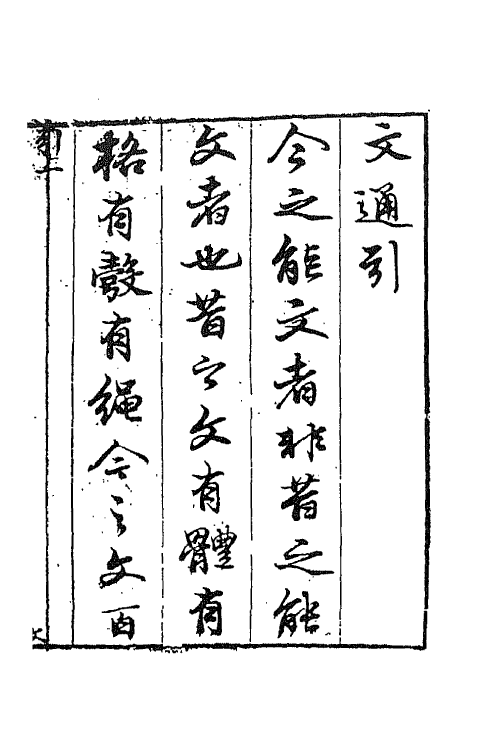 文通引
今之能文者非昔之能
文者也昔之文有體有
格有彀有繩今之文百
引一